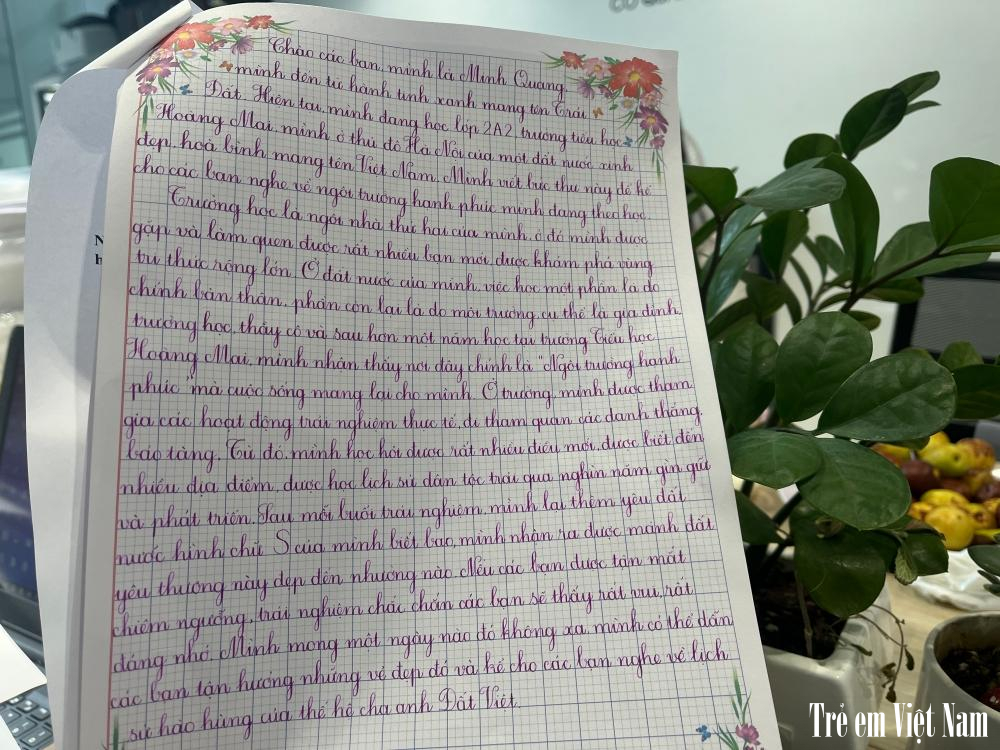 CƠ QUAN
Chào các bạn, mình là Minh Quang,
mình đến từ hành tinh xanh mang tên Trái
Đất. Hiện tại, mình đang học lớp 2A2 trường tiểu học
Hoàng Mai, mình ở thủ đô Hà Nội của một đất nước xinh
đẹp, hoà bình mang tên Việt Nam. Mình viết bức thư này để kể
cho các bạn nghe về ngôi trường hạnh phúc mình đang theo học.
Trường học là ngôi nhà thứ hai của mình, ở đó mình được
gặp và làm quen được rất nhiều bạn mới, được khám phá vùng
tri thức rộng lớn. Ở đất nước của mình, việc học một phần là do
chính bản thân, phần còn lại là do môi trường, cụ thể là gia đình,
trường học, thầy cô và sau hơn một năm học tại trường Tiểu học
Hoàng Mai, mình nhận thấy nơi đây chính là "Ngôi trường hạnh
phúc" mà cuộc sống mang lại cho mình. Ở trường, mình được tham
gia các hoạt động trải nghiệm thực tế, đi tham quan các danh thắng,
bảo tàng. Từ đó, mình học hỏi được rất nhiều điều mới, được biết đến
nhiều địa điểm, được học lịch sử dân tộc trải qua nghìn năm gìn giữ
và phát triển. Sau mỗi buổi trải nghiệm, mình lại thêm yêu đất
nước hình chữ S của mình biết bao, mình nhận ra được mảnh đất
yêu thương này đẹp đến nhường nào. Nếu các bạn được tận mắt
chiêm ngưỡng, trải nghiệm chắc chắn các bạn sẽ thấy rất vui, rất
đáng nhớ. Mình mong một ngày nào đó không xa, mình có thể dẫn
các bạn tận hưởng những vẻ đẹp đó và kể cho các bạn nghe về lịch
sử hào hùng của thế hệ cha anh Đất Việt.
Trẻ em Việt Nam